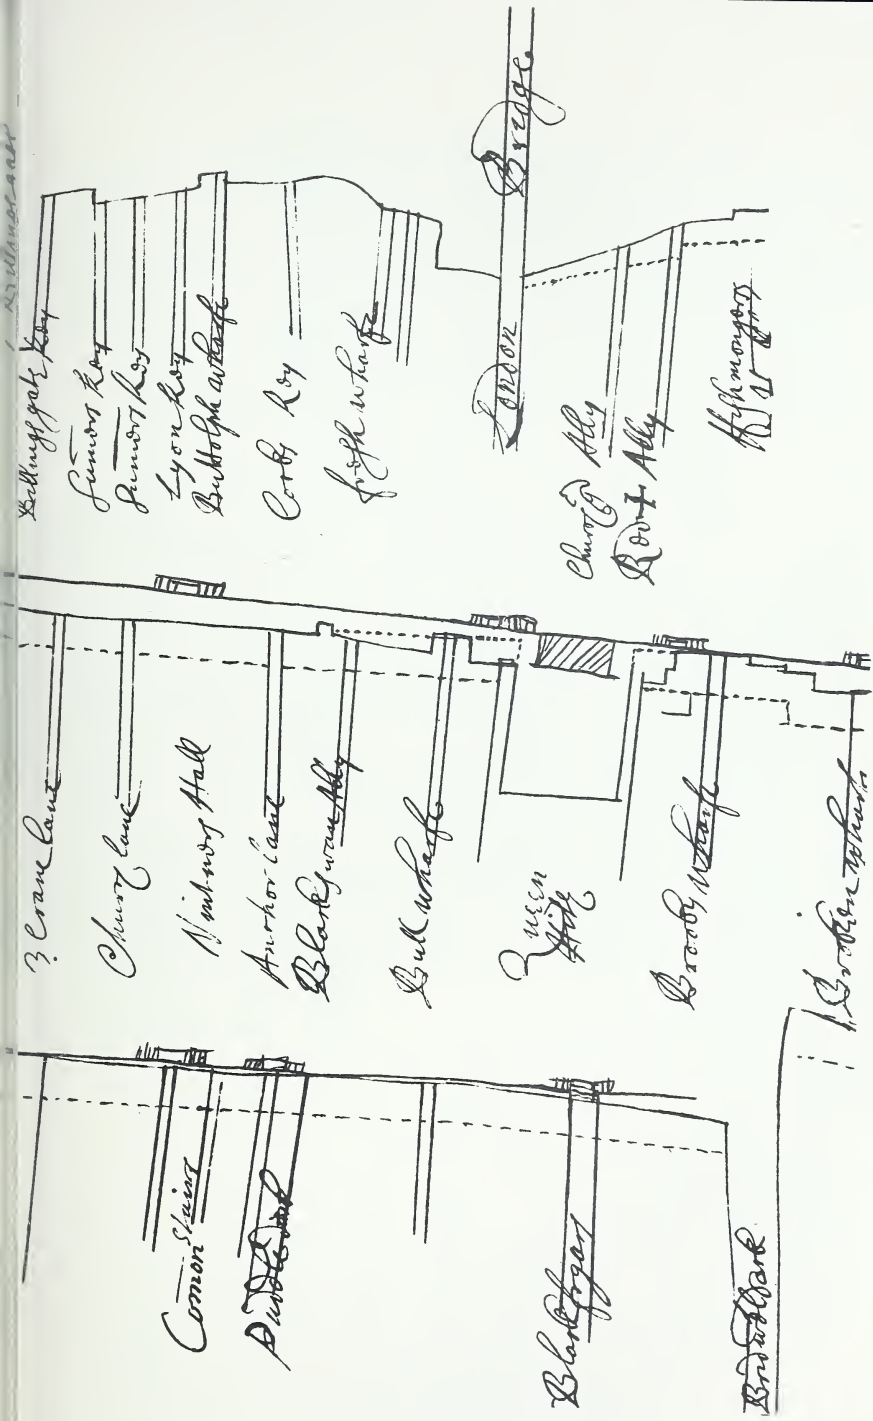 Billingsgate Key
Sumers Key
Sumers Key
Lyon Key
Buttolph wharfe
Cocks Key
fresh wharfe
London Bridge.
Church Ally
Roots Ally
ffishmongers
3 Crane lane
Church lane
Vintners Hall
Anchor lane
Black Swan Ally
Bull wharfe
Queen
Hith
Broock wharfe
Broken wharfe
Comon Stairs
Puddle Dock
Blackfryars
Bridwell Dock